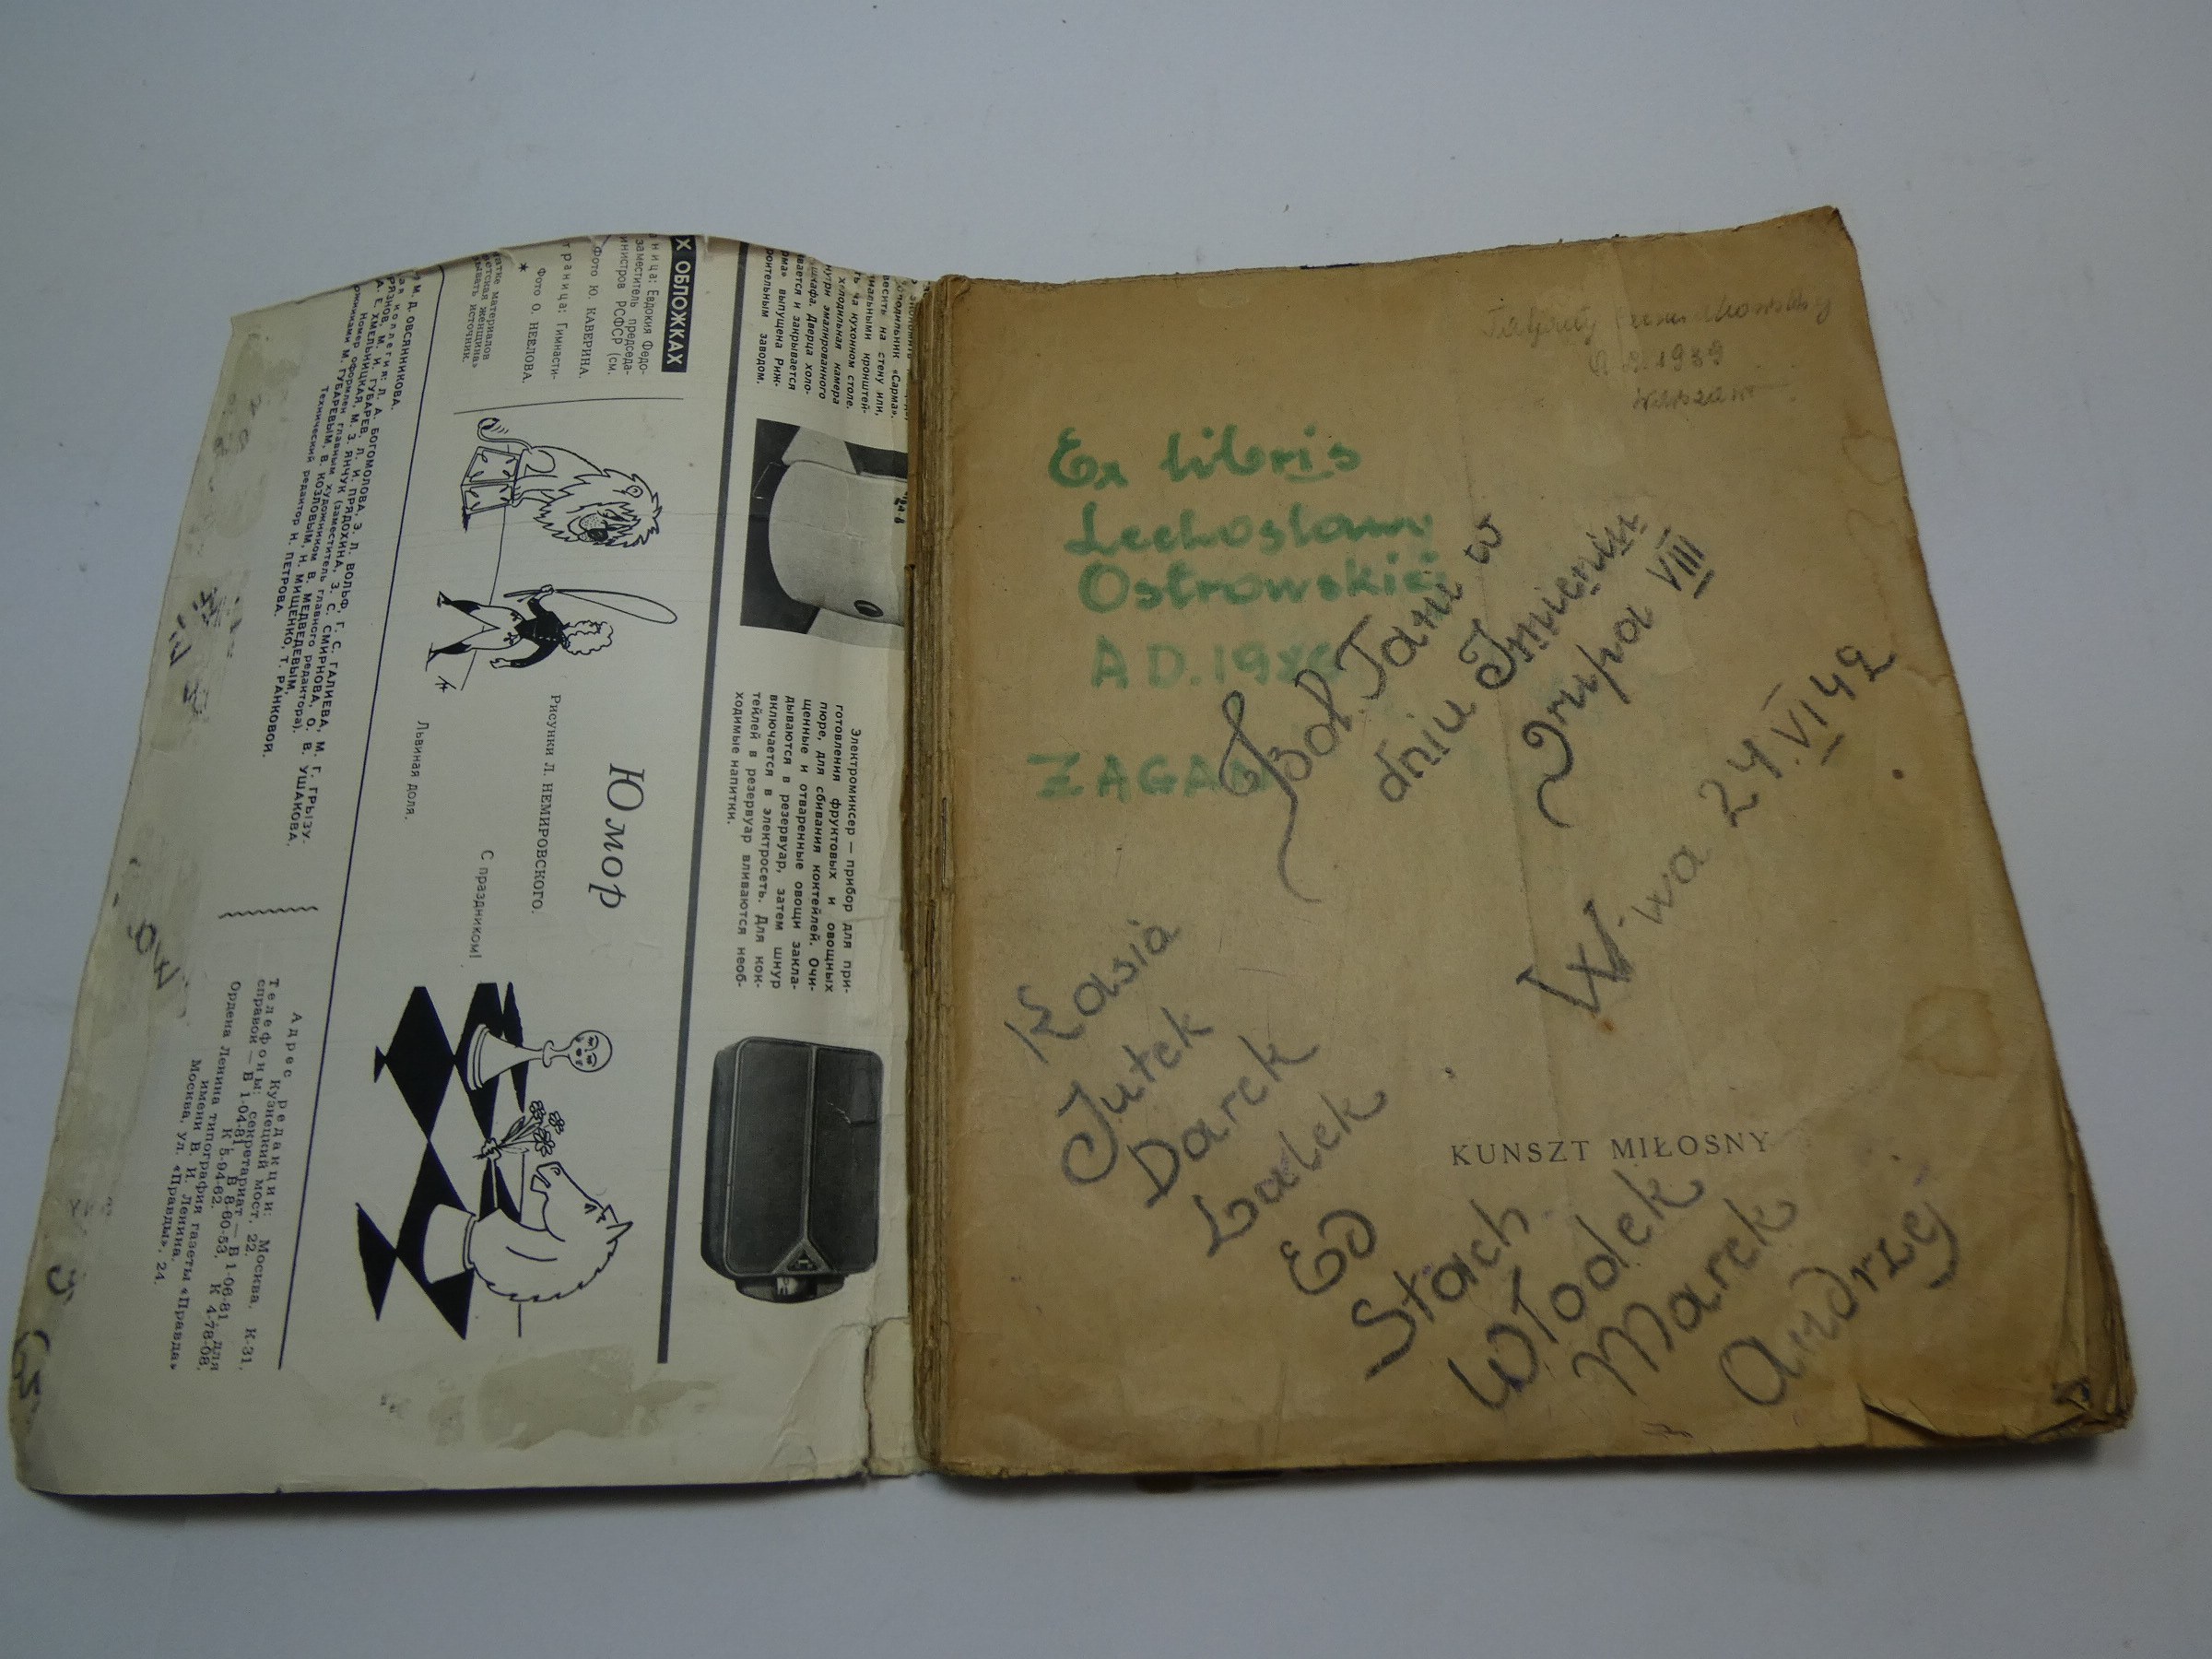 Х ОБЛОЖКАХ
ница: Евдокия Федо-
заместитель председа-
инистров РСФСР (см.
Фото Ю. КАВЕРИНА.
траница: Гимнасти-
Фото О. НЕЕЛОВА.
*
атке материалов
етская женщина»
ывать источник.
М. Д. ОВСЯННИКОВА.
коллегия: Л. А. БОГОМОЛОВА, З. Л. ВОЛЬФ, Г. С. ГАЛИЕВА, М. Г. ГРЫЗУ-
М. И. ГУБАРЕВ, Л. И. ПРЯДОХИНА, З. С. СМИРНОВА, О. В. УШАКОВА,
А. Е. ХМЕЛЬНИЦКАЯ, М. З. ЯНЧУК (заместитель главного редактора).
Номер оформлен главным художником В. МЕДВЕДЕВЫМ,
М. ГУБАРЕВЫМ, В. КОЗЛОВЫМ, Н. МИЩЕНКО, Т. РАНКОВОЙ.
Технический редактор Н. ПЕТРОВА.
холодильник «Сарма».
весить на стену или,
кухонном столе.
холодильная камера
нутри эмалированного
шкафа. Дверца холо-
вается и закрывается
рма» выпущена Риж-
роительным заводом.
Электромиксер — прибор для при-
готовления фруктовых и овощных
пюре, для сбивания коктейлей. Очи-
щенные и отваренные овощи закла-
дываются в резервуар, затем шнур
включается в электросеть. Для кок-
тейлей в резервуар вливаются необ-
ходимые напитки.
Юмор
Рисунки Л. НЕМИРОВСКОГО.
Львиная доля.
С праздником!
Адрес редакции: Москва, К-31,
Кузнецкий мост, 22.
Телефоны: секретариат — В 1-06-81, для
справок — В 1-04-81, В 8-60-53, К 4-78-08,
К 5-94-62.
Ордена Ленина типография газеты «Правда»
имени В. И. Ленина.
Москва, ул. «Правды», 24.
1939
Ex libris
Ostrowskiej
A.D. 19
dniu Imienin
Grupa VIII
W-wa 24.VI 42
Kasia
Jutek
Darek
Lalek
Ed
Stach
Włodek
Marek
Andrzej
KUNSZT MIŁOSNY